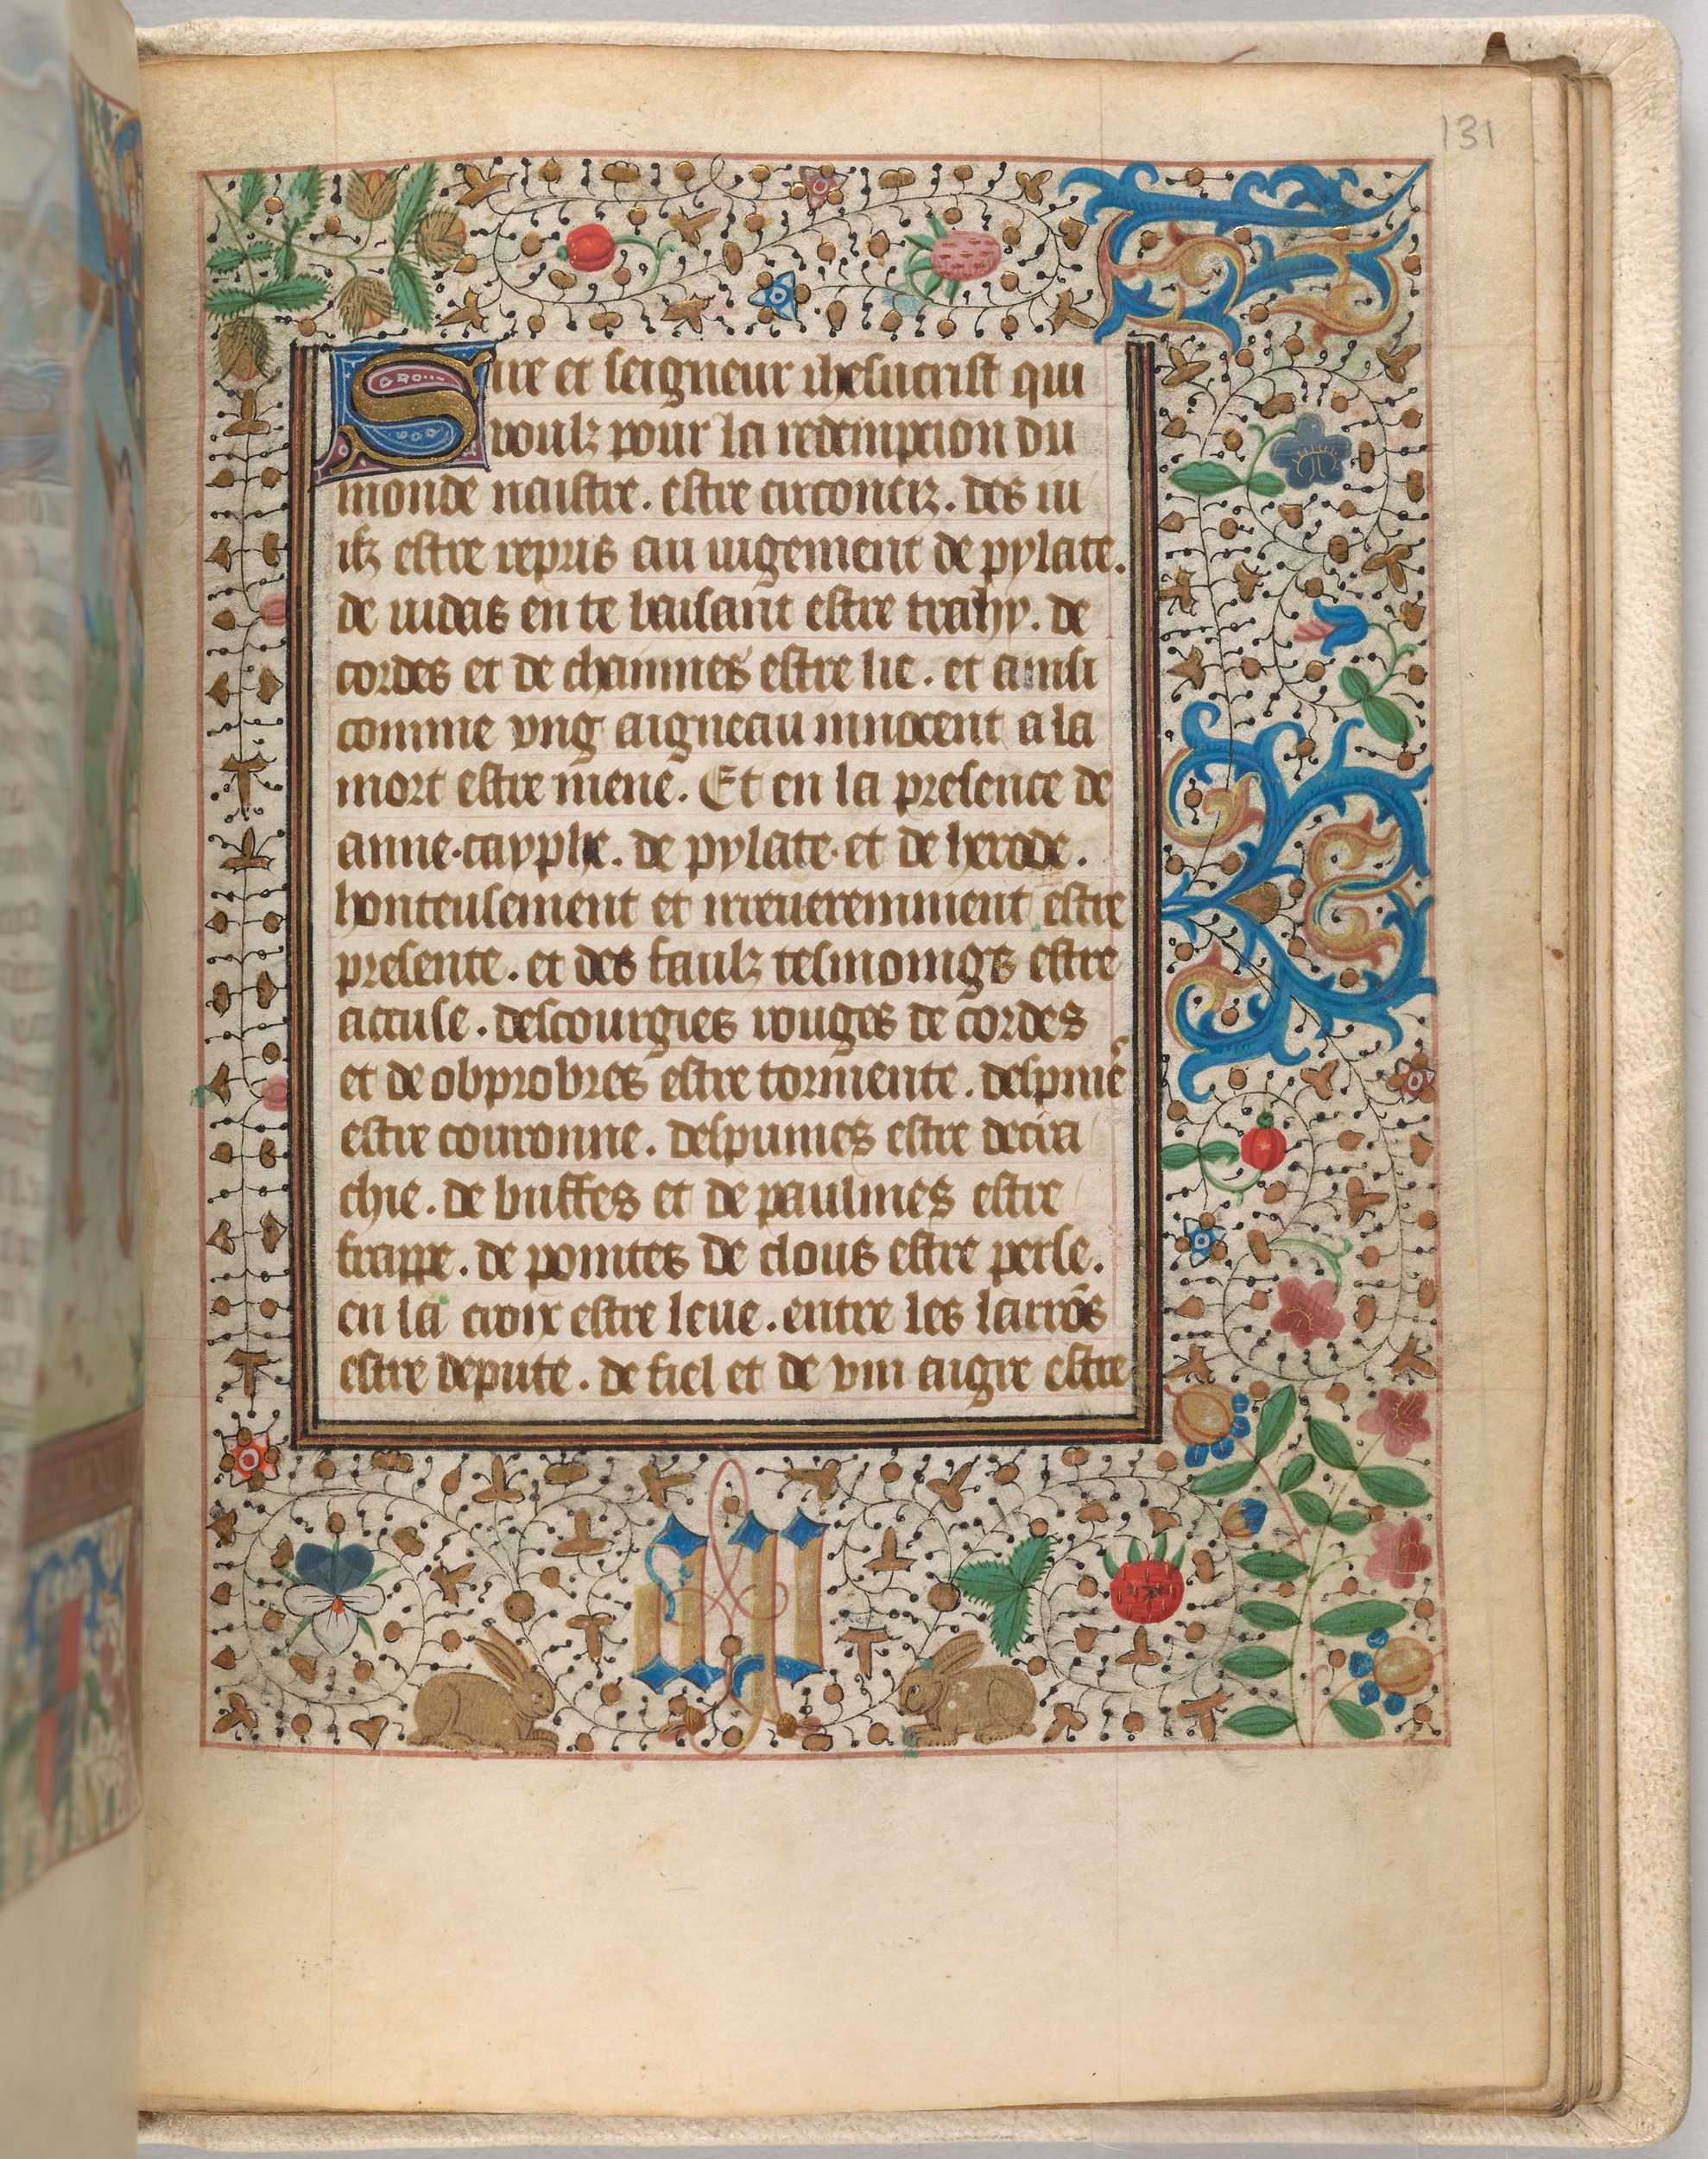 131
Sire et seigneur ihesucrist qui
voulz pour la redempcion du
monde naistre. estre circonciz. des iu
ifz estre repris au iugement de pylate.
de iudas en te baisant estre trahy. de
cordes et de chainnes estre lie. et ainsi
comme vng aigneau innocent a la
mort estre mene. Et en la presence de
anne. cayphe. de pylate. et de herode.
honteusement et irreueremment estre
presente. et des faulz tesmoings estre
accuse. descourgies rouges de cordes
et de obprobres estre tormente. despinẽ
estre couronne. despumes estre decra
chie. de buffes et de paulmes estre
frappe. de pointes de clous estre perse.
en la croix estre leue. entre les larrõs
estre depute. de fiel et de vin aigre estre